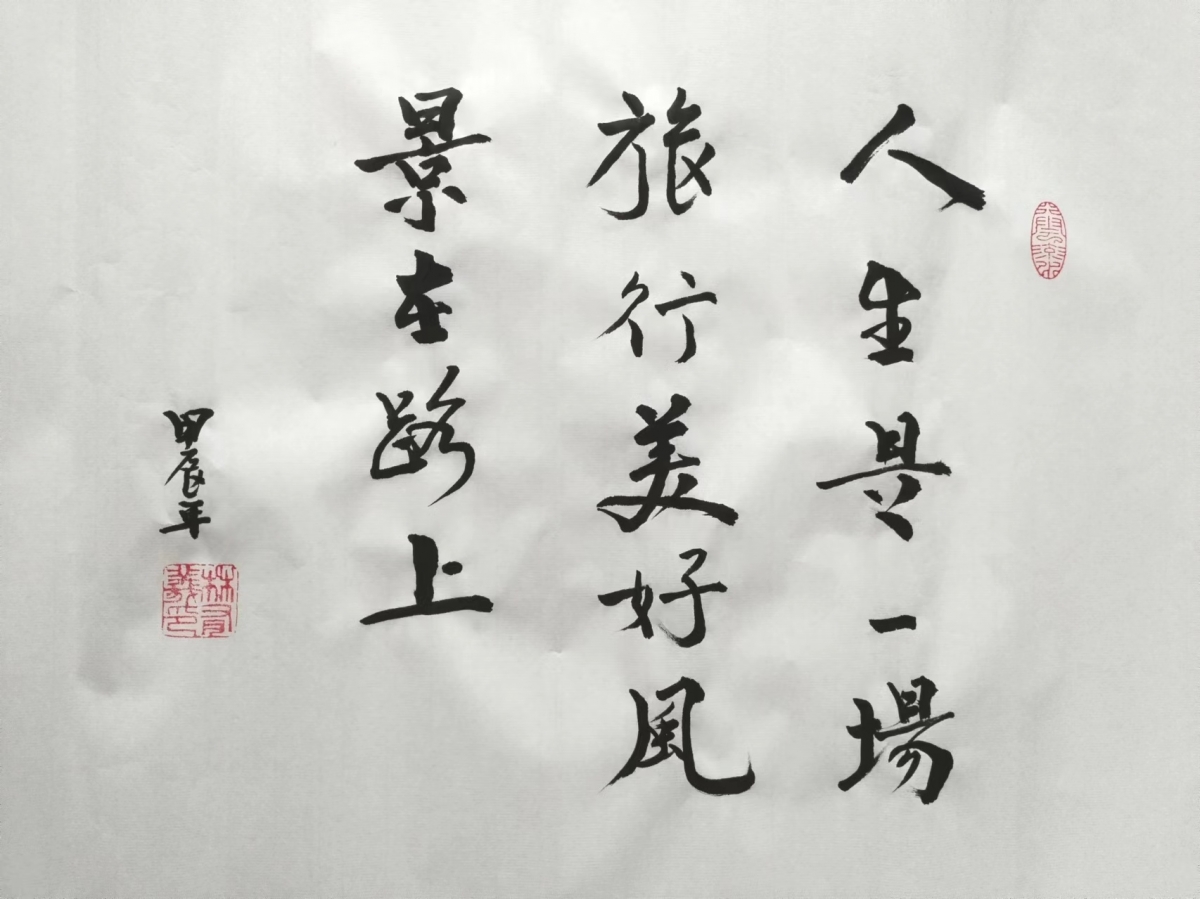 人生是一場
旅行美好風
景在路上
甲辰年